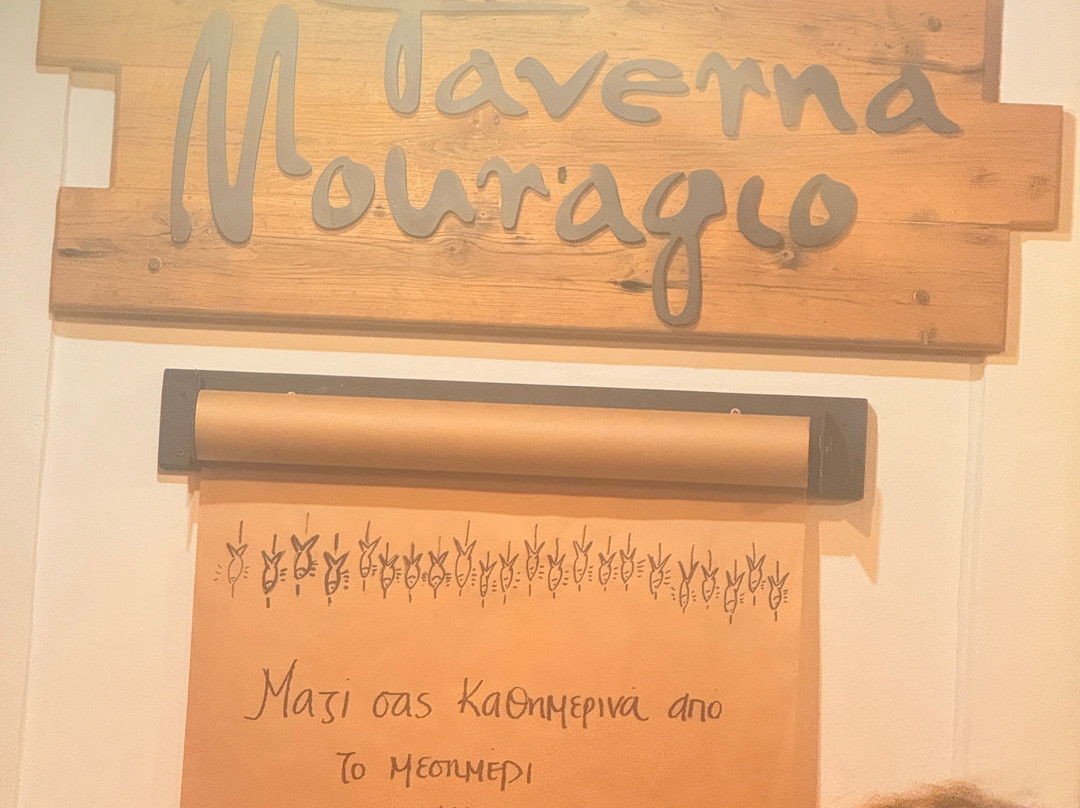 Taverna
Mouragio
Μαζί σας καθημερινά από
το μεσημέρι